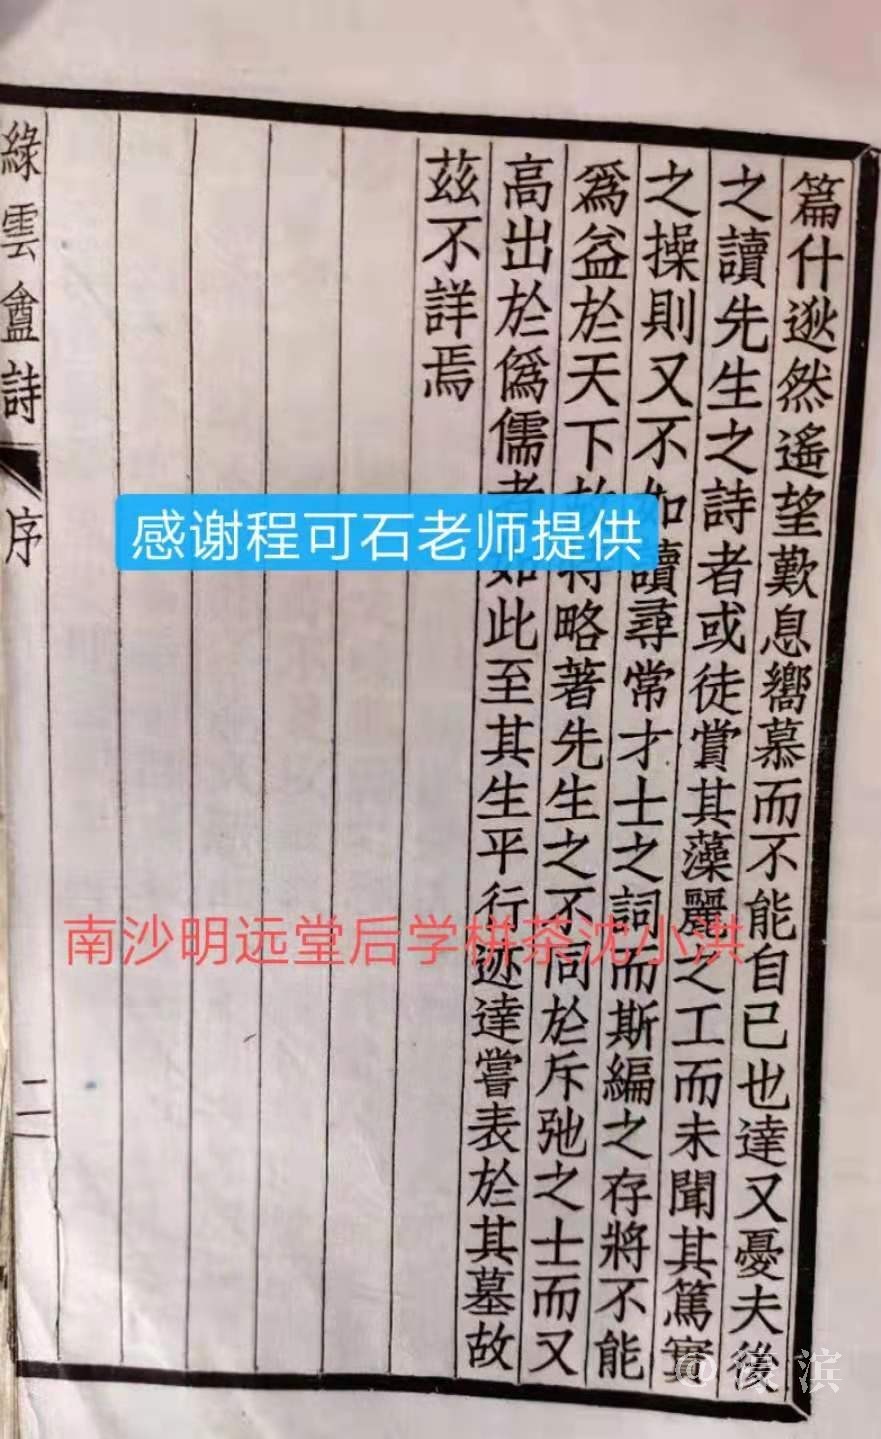 篇什逖然遙望歎息嚮慕而不能自已也達又憂夫後
之讀先生之詩者或徒賞其藻麗之工而未聞其篤實
之操則又不如讀尋常才士之詞而斯編之存將不能
爲益於天下故特略著先生之不同於斥弛之士而又
高出於僞儒者如此至其生平行迹達嘗表於其墓故
茲不詳焉
綠雲盦詩
序
二
感谢程可石老师提供
南沙明远堂后学栟茶沈小洪
@濠滨